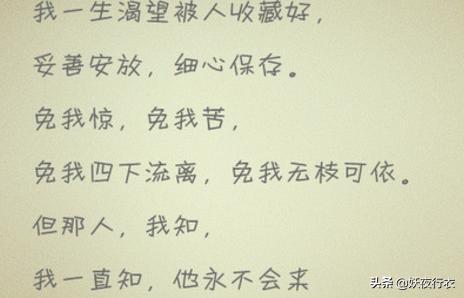 我一生渴望被人收藏好，
妥善安放，细心保存。
免我惊，免我苦，
免我四下流离，免我无枝可依。
但那人，我知，
我一直知，他永不会来
头条 @妖夜行衣